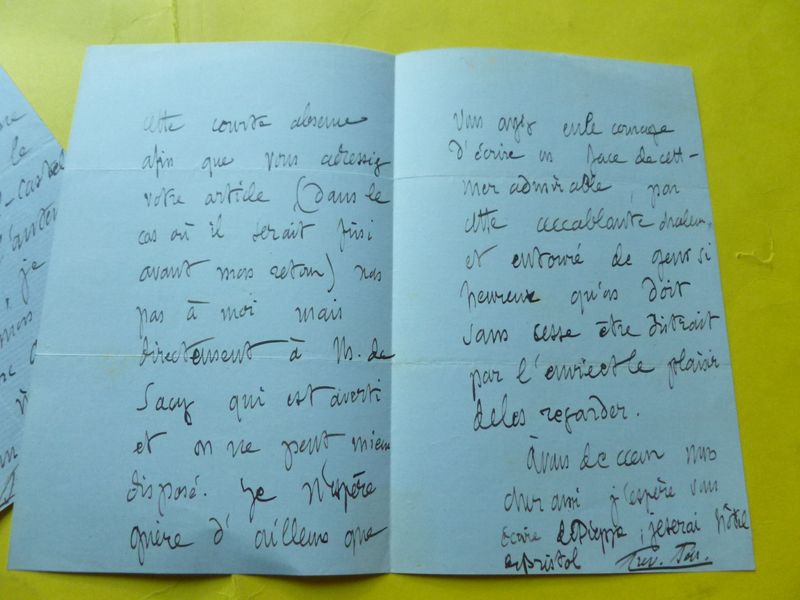 cette courte absence
afin que vous adressiez
votre article (dans le
cas où il serait fini
avant mon retour) non
pas à moi mais
directement à M. de
Sacy qui est averti
et on ne peut mieux
disposé. Je n'espère
guère d'ailleurs que
vous ayez eu le courage
d'écrire en face de cette
mer admirable, par
cette accablante chaleur,
et entouré de gens si
heureux qu'on doit
sans cesse être distrait
par l'envie et le plaisir
de les regarder.
À vous de cœur mon
cher ami j'espère vous
écrire de Dieppe, je serai hôtel
Bristol
le
- castel
je